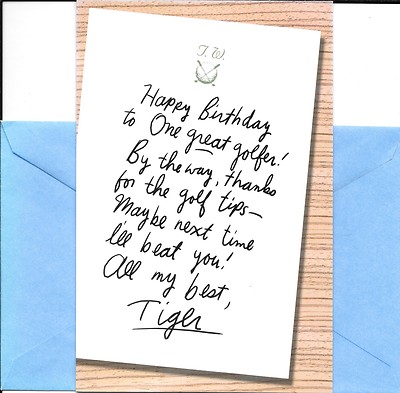 T. W.
Happy Birthday
to One great golfer!
By the way, thanks
for the golf tips—
Maybe next time
I'll beat you!
All my best,
Tiger